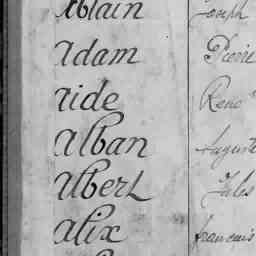 Ablain Joseph
Adam Pierre
Aide René
Alban Auguste
Albert Jules
Alix francois